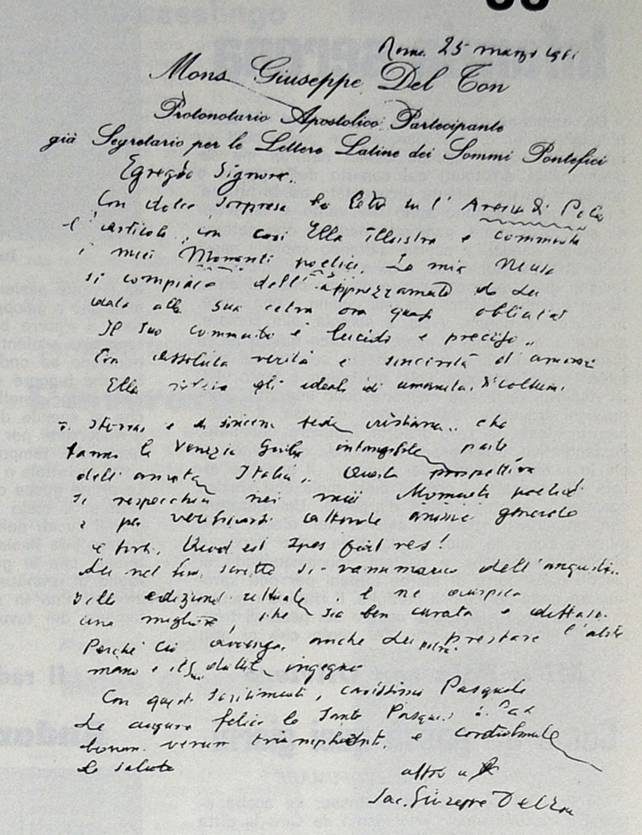 Roma. 25 marzo 1981
Mons. Giuseppe Del Ton
Protonotario Apostolico Partecipante
già Segretario per le Lettere Latine dei Sommi Pontefici
Egregio Signore..
Con dolce sorpresa ho letto su l'Arena di Pola
l'articolo, con cui Ella illustra e commenta
i miei Momenti poetici. La mia Musa
si compiace dell'apprezzamento da Lei
dato alla sua cetra ora quasi obliata!
Il suo commento è lucido e preciso..
Con assoluta verità e sincerità d'
Ella gli ideali di umanità, di
e di sincera fede cristiana.. che
fanno la Venezia Giulia intangibile parte
dell'amata Italia.. Questa prospettiva
si respecchia nei miei Momenti poetici
e per cultorale generale
e forti. Quod est spes fiat res!
Lei nel suo scritto si rammarica dell'
della edizione attuale e ne auspica
una migliore, che sia ben curata e
Perché ciò avvenga, anche Lei potrà prestare l'
mano e il ingegno
Con questi sentimenti, carissimo Pasquale
Le auguro felice la Santa Pasqua:
bonum verum triumphent. e cordialmente
La saluto
Sac. Giuseppe Del Ton